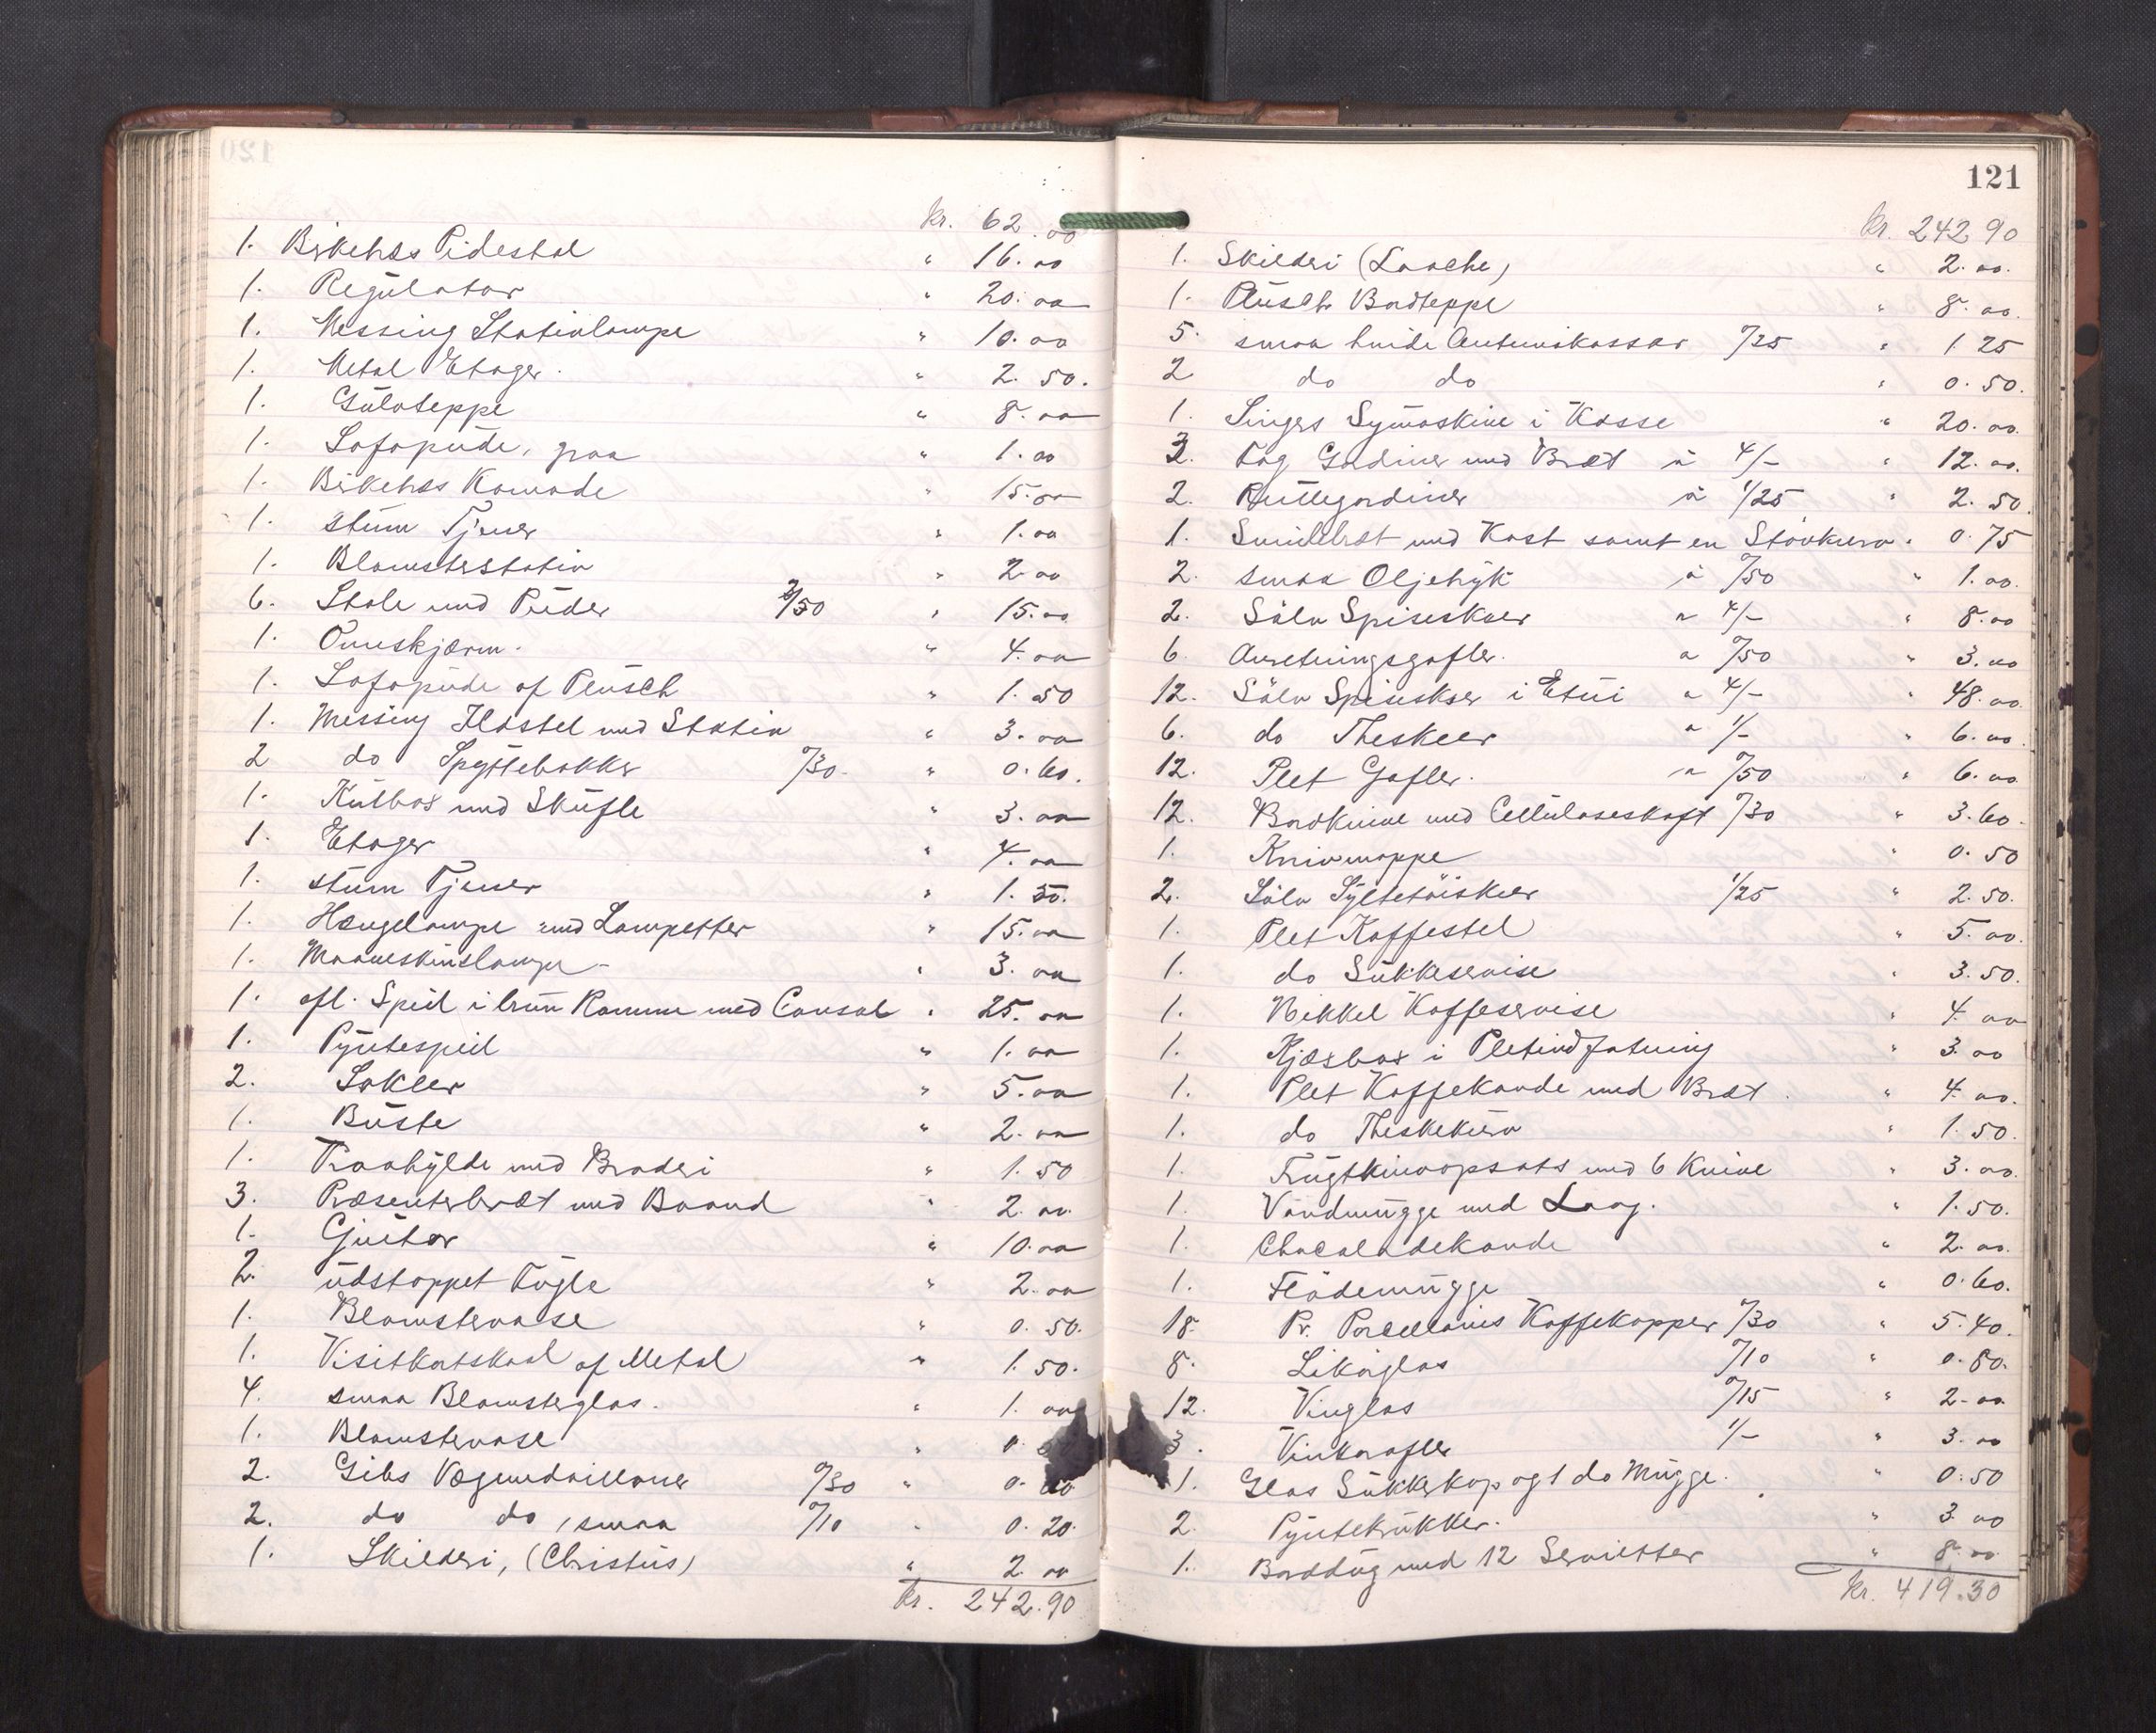 kr. 62.00
1. Birketræs Pidestal " 16.00
1. Regulator " 20.00
1. Messing Stativlampe " 10.00
1. Metal Etager. " 2.50.
1. Gulvteppe " 8.00
1. Sofapude, graa " 1.00
1. Birketræs Komode " 15.00
1. stum Tjener " 1.00
1. Blomsterstativ " 2.00
6. Stole med Puder 2/50 " 15.00
1. Ovnskjærm. " 4.00
1. Sofapude af Plusch " 1.50
1. Messing Ildstel med Stativ " 3.00
2 do Spyttebakker 0/30. " 0.60.
1. Kulbox med Skufle " 3.00
1. Etager " 4.00
1. stum Tjener " 1.50.
1. Hængelampe med Lampetter " 15.00
1. Maaneskinslampe " 3.00
1. afl. Speil i brun Ramme med Consol " 25.00
1. Pyntespeil " 1.00
2. Sokler " 5.00
1. Buste " 2.00
1. Traahylde med Broderi " 1.50
3. Præsenterbræt med Baand " 2.00.
1. Guitar " 10.00
2. udstoppet Fugle " 2.00
1. Blomstervase " 0.50.
1. Visitkortskaal af Metal " 1.50.
4. smaa Blomsterglas. " 1.00
1. Blomstervase " 0.
2. Gibs Vægmedailloner 0/30 " 0.60
2. do do, smaa 0/10 " 0.20.
1. Skilderi, (Christus) " 2.00
kr. 242.90
121
kr. 242.90
1. Skilderi (Laache) " 2.00.
1. Plusch Bordteppe " 8.00.
5. smaa hvide Antemikassar 0/25 " 1.25
2 do do " 0.50.
1. Singers Symaskine i Kasse " 20.00.
3. Fag Gardiner med Bræt à 4/- " 12.00.
2. Rullegardiner à 1/25 " 2.50.
1. Smuldbræt med Kost samt en Stövkurv " 0.75
2. smaa Oljetryk à 0/50 " 1.00.
2. Sölv Spiseskeer a 4/- " 8.00
6. Anretningsgafler. a 0/50 " 3.00
12. Sölv Spiseskeer i Etui a 4/- " 48.00.
6. do Theskeer a 1/- " 6.00.
12. Plet Gafler. a 0/50 " 6.00
12. Bordknive med Celluloseskaft 0/30 " 3.60.
1. Knivmappe " 0.50
2. Sölv Syltetöiskeer 1/25 " 2.50.
1. Plet Kaffestel " 5.00.
1. do Sukkerservise " 3.50.
1. Nikkel Kaffeservise " 4.00
1. Kjæxbox i Pletindfatning " 3.00
1. Plet Kaffekande med Bræt. " 4.00.
1. do Theskekurv " 1.50.
1. Frugtknivopsats med 6 Knive " 3.00.
1. Vandmugge med Laag. " 1.50.
1. Chocoladekande " 2.00.
1. Flödemugge " 0.60.
18. Pr. Porcellains Kaffekopper 0/30 " 5.40.
8. Likörglas 0/10 " 0.80.
12. Vinglas 0/15 " 2.00
3. Vinkarafler 1/- " 3.00
1. Glas Sukkerkop og 1 do Mugge. " 0.50
2. Pyntekrukker. " 3.00
1. Borddug med 12 Servietter " 8.00
kr. 419.30